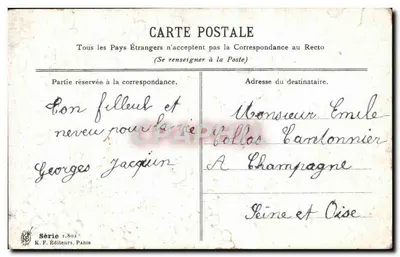 CARTE POSTALE
Tous les Pays Étrangers n'acceptent pas la Correspondance au Recto
(Se renseigner à la Poste)
Partie réservée à la correspondance.
Ton filleul et
neveu pour la vie
Georges Jacquin
Adresse du destinataire.
Monsieur Emile
Collos Cantonnier
A Champagne
Seine et Oise
Série 1.801
K. F. Éditeurs, Paris